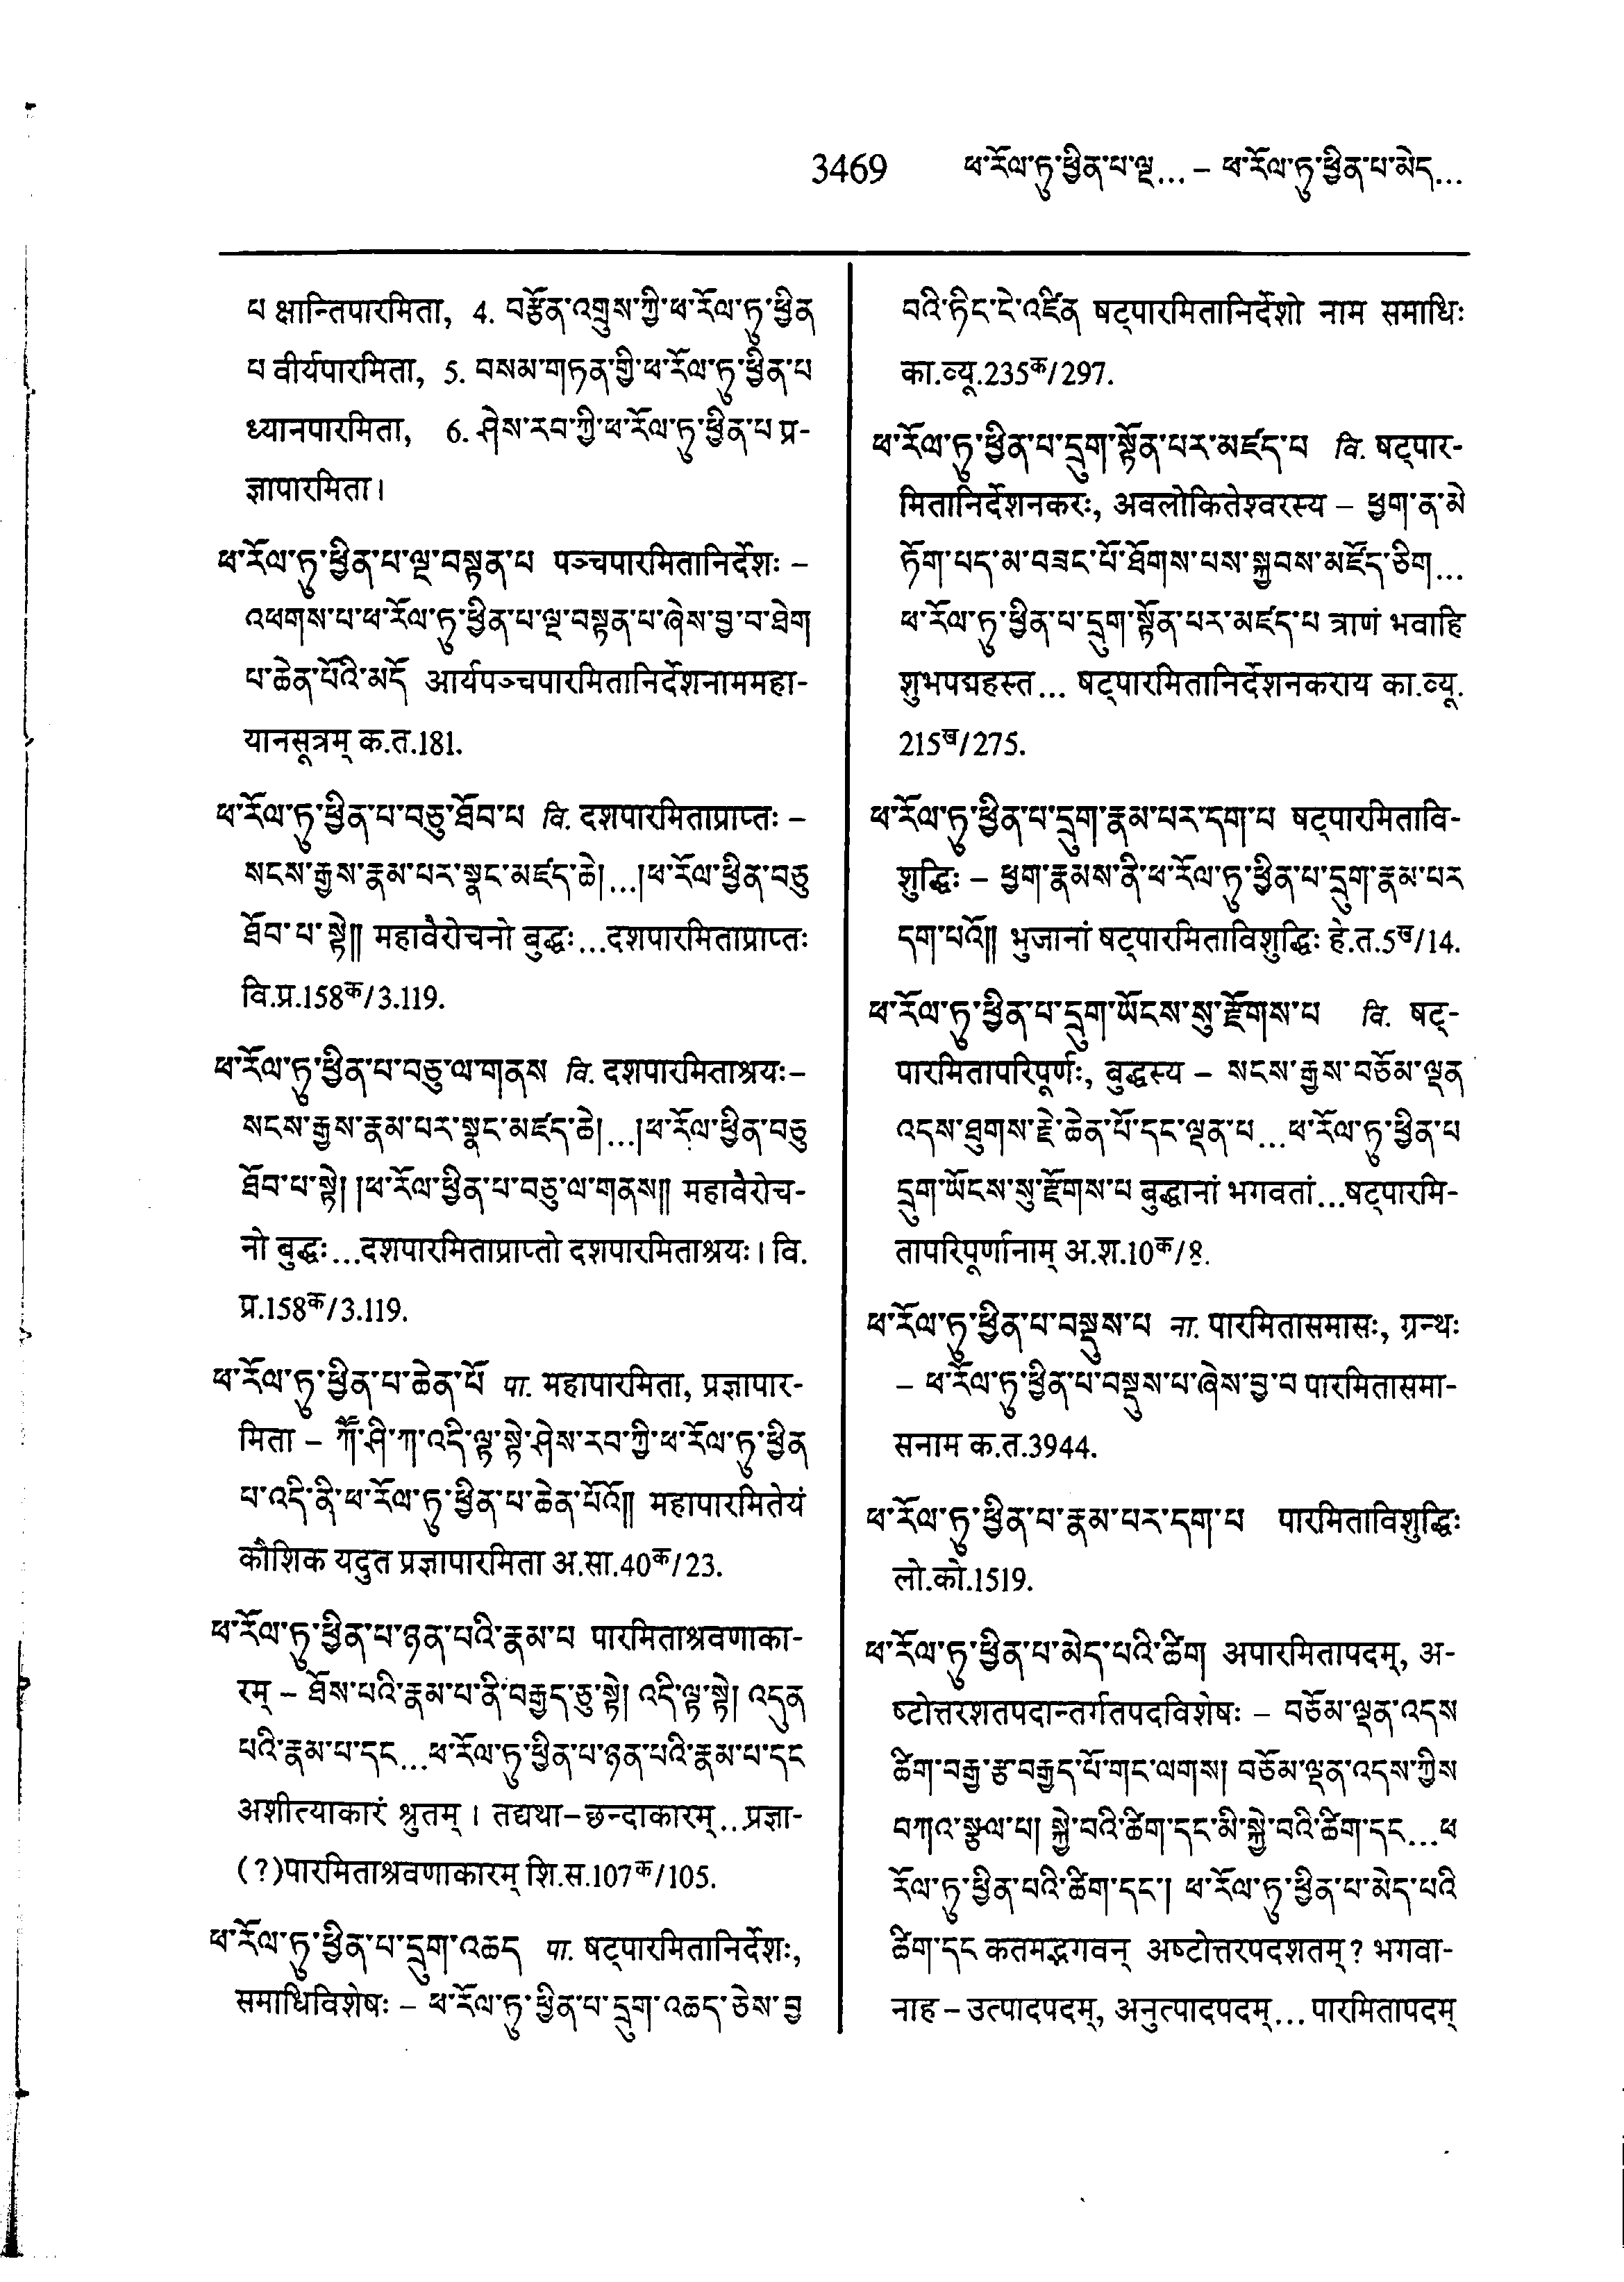 3469 ཕ་རོལ་ཏུ་ཕྱིན་པ་ལྔ... – ཕ་རོལ་ཏུ་ཕྱིན་པ་མེད...
པ क्षान्तिपारमिता, 4. བརྩོན་འགྲུས་ཀྱི་ཕ་རོལ་ཏུ་ཕྱིན
པ वीर्यपारमिता, 5. བསམ་གཏན་གྱི་ཕ་རོལ་ཏུ་ཕྱིན་པ
ध्यानपारमिता, 6. ཤེས་རབ་ཀྱི་ཕ་རོལ་ཏུ་ཕྱིན་པ प्र-
ज्ञापारमिता।
ཕ་རོལ་ཏུ་ཕྱིན་པ་ལྔ་བསྟན་པ पञ्चपारमितानिर्देशः –
འཕགས་པ་ཕ་རོལ་ཏུ་ཕྱིན་པ་ལྔ་བསྟན་པ་ཞེས་བྱ་བ་ཐེག
པ་ཆེན་པོའི་མདོ आर्यपञ्चपारमितानिर्देशनाममहा-
यानसूत्रम् क.त.181.
ཕ་རོལ་ཏུ་ཕྱིན་པ་བཅུ་ཐོབ་པ वि. दशपारमिताप्राप्तः –
སངས་རྒྱས་རྣམ་པར་སྣང་མཛད་ཆེ།...།ཕ་རོལ་ཕྱིན་བཅུ
ཐོབ་པ་སྟེ༎ महावैरोचनो बुद्धः...दशपारमिताप्राप्तः
वि.प्र.158क/3.119.
ཕ་རོལ་ཏུ་ཕྱིན་པ་བཅུ་ལ་གནས वि. दशपारमिताश्रयः–
སངས་རྒྱས་རྣམ་པར་སྣང་མཛད་ཆེ།...།ཕ་རོལ་ཕྱིན་བཅུ
ཐོབ་པ་སྟེ། །ཕ་རོལ་ཕྱིན་པ་བཅུ་ལ་གནས༎ महावैरोच-
नो बुद्धः...दशपारमिताप्राप्तो दशपारमिताश्रयः। वि.
प्र.158क/3.119.
ཕ་རོལ་ཏུ་ཕྱིན་པ་ཆེན་པོ पा. महापारमिता, प्रज्ञापार-
मिता – ཀཽ་ཤི་ཀ་འདི་ལྟ་སྟེ་ཤེས་རབ་ཀྱི་ཕ་རོལ་ཏུ་ཕྱིན
པ་འདི་ནི་ཕ་རོལ་ཏུ་ཕྱིན་པ་ཆེན་པོའོ༎ महापारमितेयं
कौशिक यदुत प्रज्ञापारमिता अ.सा.40क/23.
ཕ་རོལ་ཏུ་ཕྱིན་པ་ཉན་པའི་རྣམ་པ पारमिताश्रवणाका-
रम् – ཐོས་པའི་རྣམ་པ་ནི་བརྒྱད་ཅུ་སྟེ། འདི་ལྟ་སྟེ། འདུན
པའི་རྣམ་པ་དང...ཕ་རོལ་ཏུ་ཕྱིན་པ་ཉན་པའི་རྣམ་པ་དང
अशीत्याकारं श्रुतम्। तद्यथा–छन्दाकारम्...प्रज्ञा-
(?)पारमिताश्रवणाकारम् शि.स.107क/105.
ཕ་རོལ་ཏུ་ཕྱིན་པ་དྲུག་འཆད पा. षट्पारमितानिर्देशः,
समाधिविशेषः – ཕ་རོལ་ཏུ་ཕྱིན་པ་དྲུག་འཆད་ཅེས་བྱ
བའི་ཏིང་ངེ་འཛིན षट्पारमितानिर्देशो नाम समाधिः
का.व्यू.235क/297.
ཕ་རོལ་ཏུ་ཕྱིན་པ་དྲུག་སྟོན་པར་མཛད་པ वि. षट्पार-
मितानिर्देशनकरः, अवलोकितेश्वरस्य – ཕྱག་ན་མེ
ཏོག་པད་མ་བཟང་པོ་ཐོགས་པས་སྐྱབས་མཛོད་ཅིག...
ཕ་རོལ་ཏུ་ཕྱིན་པ་དྲུག་སྟོན་པར་མཛད་པ त्राणं भवाहि
शुभपद्महस्त... षट्पारमितानिर्देशनकराय का.व्यू.
215ख/275.
ཕ་རོལ་ཏུ་ཕྱིན་པ་དྲུག་རྣམ་པར་དག་པ षट्पारमितावि-
शुद्धिः – ཕྱག་རྣམས་ནི་ཕ་རོལ་ཏུ་ཕྱིན་པ་དྲུག་རྣམ་པར
དག་པའོ༎ भुजानां षट्पारमिताविशुद्धिः हे.त.5ख/14.
ཕ་རོལ་ཏུ་ཕྱིན་པ་དྲུག་ཡོངས་སུ་རྫོགས་པ वि. षट्-
पारमितापरिपूर्णः, बुद्धस्य – སངས་རྒྱས་བཅོམ་ལྡན
འདས་ཐུགས་རྗེ་ཆེན་པོ་དང་ལྡན་པ...ཕ་རོལ་ཏུ་ཕྱིན་པ
དྲུག་ཡོངས་སུ་རྫོགས་པ बुद्धानां भगवतां...षट्पारमि-
तापरिपूर्णानाम् अ.श.10क/8.
ཕ་རོལ་ཏུ་ཕྱིན་པ་བསྡུས་པ ना. पारमितासमासः, ग्रन्थः
– ཕ་རོལ་ཏུ་ཕྱིན་པ་བསྡུས་པ་ཞེས་བྱ་བ पारमितासमा-
सनाम क.त.3944.
ཕ་རོལ་ཏུ་ཕྱིན་པ་རྣམ་པར་དག་པ पारमिताविशुद्धिः
लो.को.1519.
ཕ་རོལ་ཏུ་ཕྱིན་པ་མེད་པའི་ཚིག अपारमितापदम्, अ-
ष्टोत्तरशतपदान्तर्गतपदविशेषः – བཅོམ་ལྡན་འདས
ཚིག་བརྒྱ་རྩ་བརྒྱད་པོ་གང་ལགས། བཅོམ་ལྡན་འདས་ཀྱིས
བཀའ་སྩལ་པ། སྐྱེ་བའི་ཚིག་དང་མི་སྐྱེ་བའི་ཚིག་དང...ཕ
རོལ་ཏུ་ཕྱིན་པའི་ཚིག་དང་། ཕ་རོལ་ཏུ་ཕྱིན་པ་མེད་པའི
ཚིག་དང कतमद्भगवन् अष्टोत्तरपदशतम्? भगवा-
नाह – उत्पादपदम्, अनुत्पादपदम्... पारमितापदम्